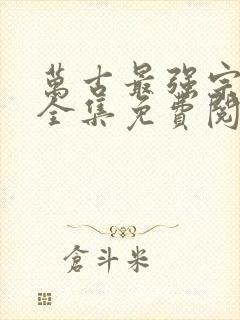 萬古最强宗
全集免費閱
倉斗米